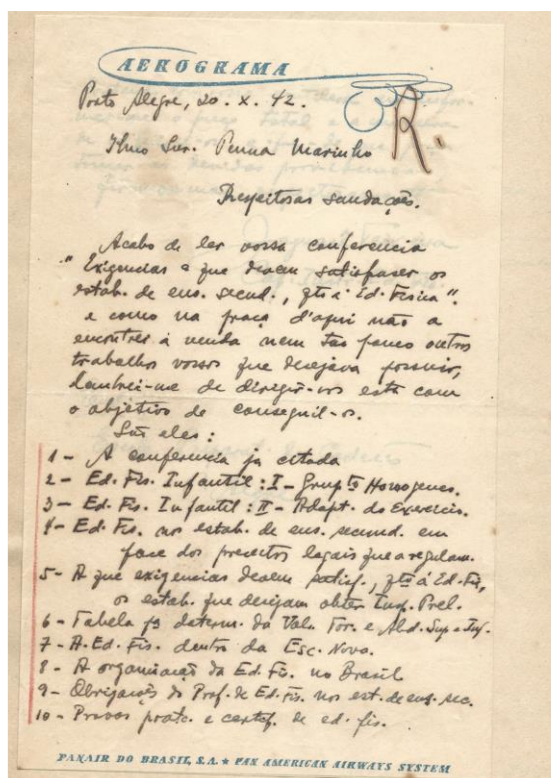 AEROGRAMA
Porto Alegre, 20. X. 42.
R.
Ilmo Snr. Penna Marinho
Respeitosas saudações.
Acabo de ler vossa conferencia
"Exigencias a que devem satisfaser os
estab. de ens. secund., qto á Ed. Fisica".
e como na praça d'aqui não a
encontrei á venda nem tão pouco outros
trabalhos vossos que desejava possuir,
lembrei-me de dirigir-vos esta com
o objetivo de conseguil-os.
São eles:
1 - A conferencia já citada
2 - Ed. Fis. Infantil: I - Grupºs Homogeneos.
3 - Ed. Fis. Infantil: II - Adapt. do Exercicio.
4 - Ed. Fis. nos estab. de ens. secund. em
face dos preceitos legais que a regulam.
5 - A que exigencias devem satisf., qto á Ed. Fis,
os estab. que desejam obter Insp. Prel.
6 - Tabela pª determ. do Val. Tor. e Abd. Sup e Inf.
7 - A. Ed. Fis. dentro da Esc. Nova.
8 - A organisação da Ed. Fis. no Brasil
9 - Obrigações do Prof. de Ed. Fis. nos est. de ens. sec.
10 - Provas prate. e certif. de ed. fis.
PANAIR DO BRASIL, S.A. ★ PAN AMERICAN AIRWAYS SYSTEM